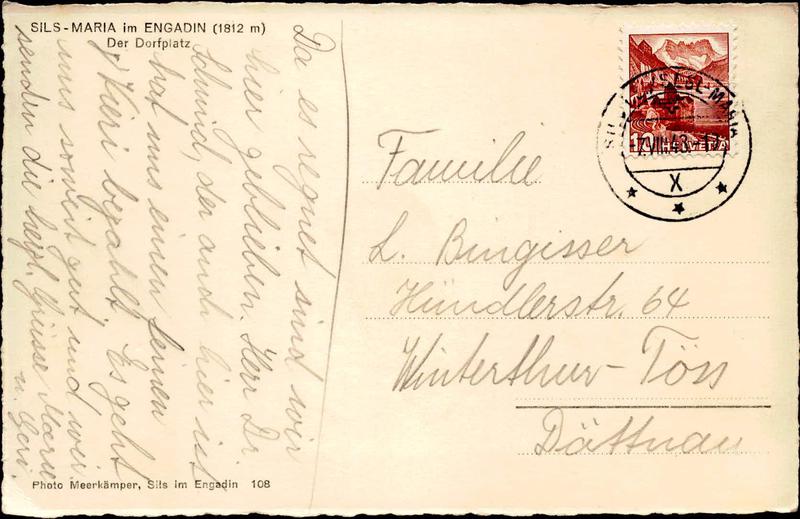 SILS-MARIA im ENGADIN (1812 m)
Der Dorfplatz
Da es regnet sind wir
hier geblieben. Herr Dr.
Schmid, der auch hier ist
hat uns einen feinen
bezahlt. Es geht
uns soweit gut und wir
senden die herzl. Grüsse
u. Geri.
Photo Meerkämper, Sils im Engadin 108
SILS-MARIA
-7.VIII.43.-17
X
10 HELVETIA
Familie
L. Bingisser
Hündlerstr. 64
Winterthur-Töss
Dättnau